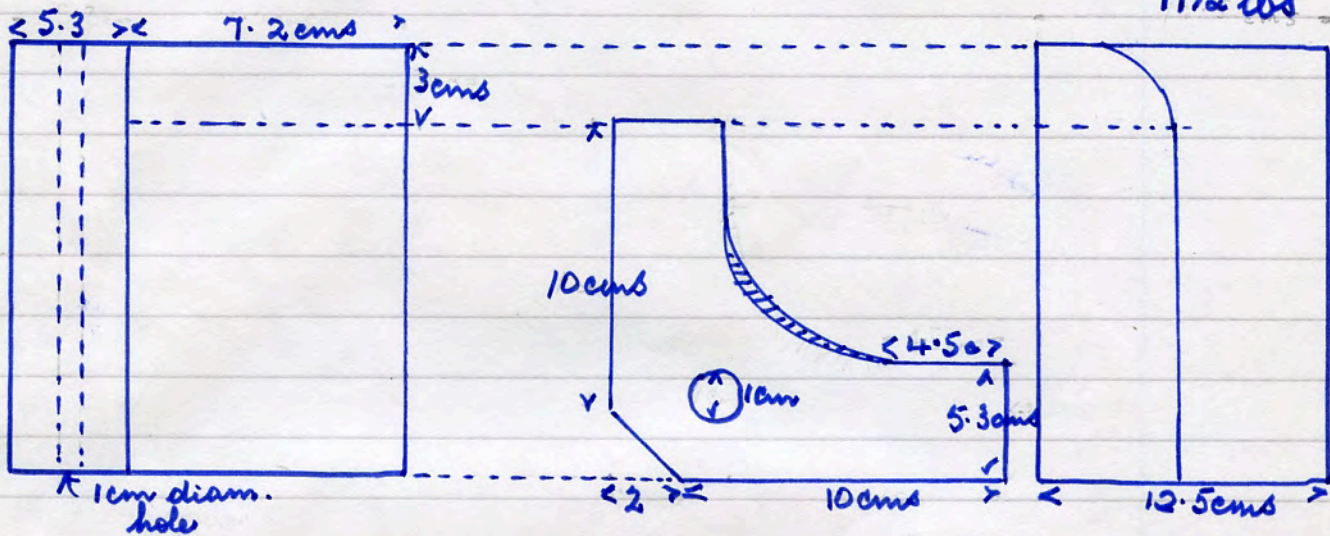 11½ lbs
< 5.3 >< 7.2 cms >
3cms
10 cms
< 4.5 >
1cm
5.3cms
1cm diam.
hole
< 2 >< 10 cms >
< 12.5cms >